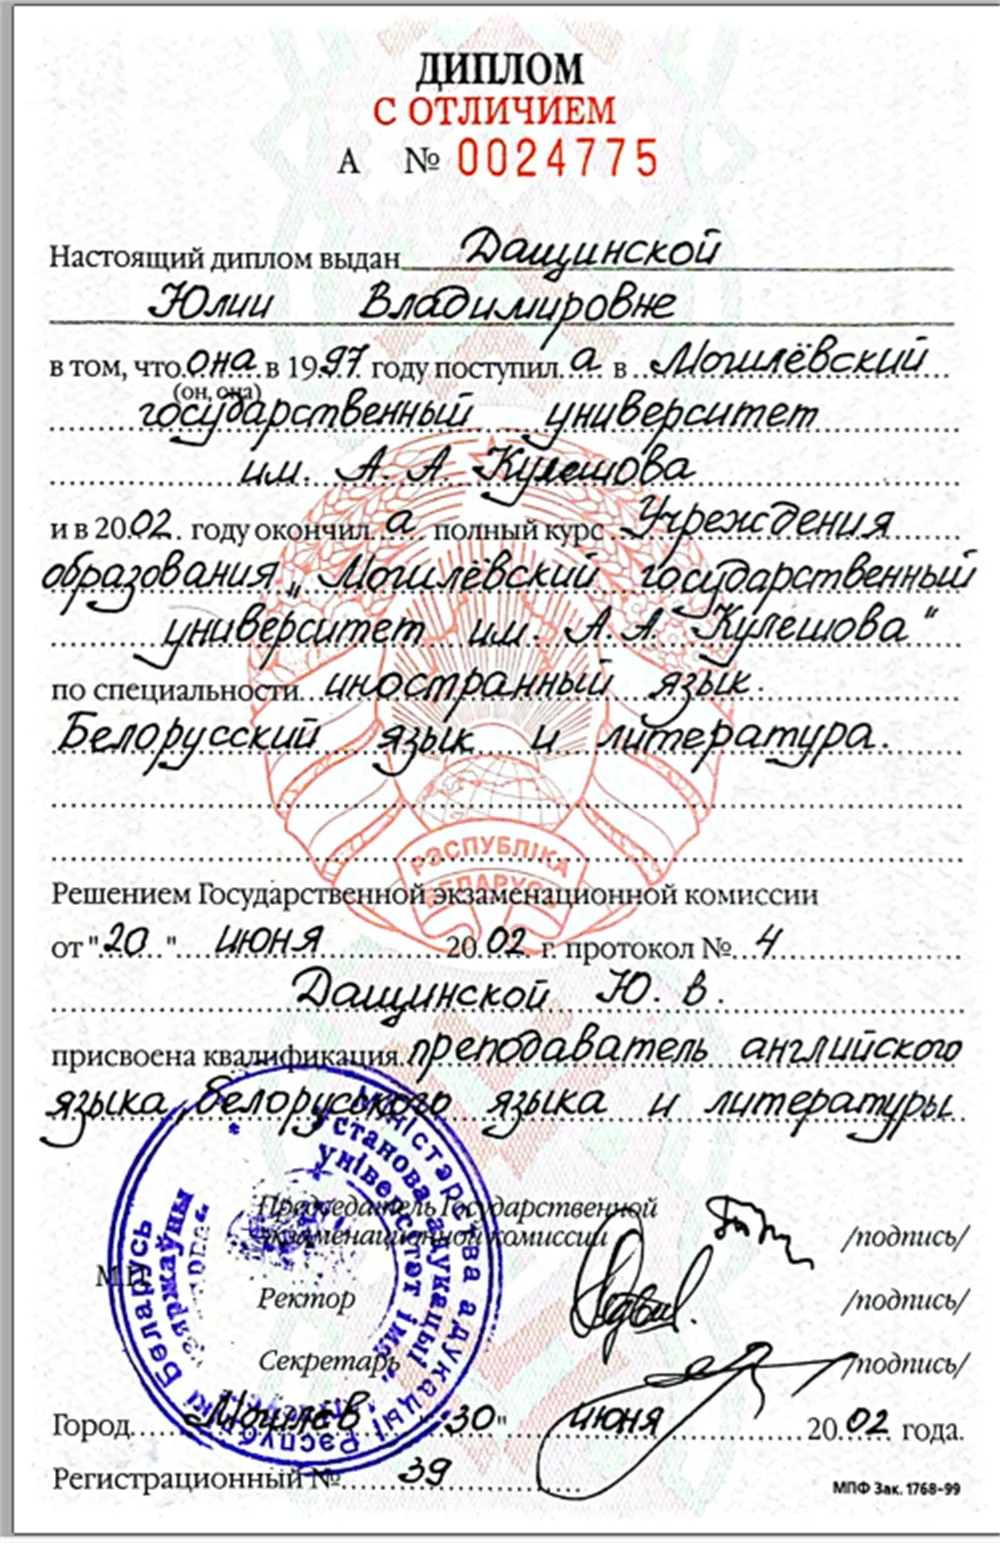 ДИПЛОМ
С ОТЛИЧИЕМ
А № 0024775
Настоящий диплом выдан Дащинской
Юлии Владимировне
в том, что она в 1997 году поступил а в Могилёвский
(он, она)
государственный университет
им. А. А. Кулешова
и в 2002. году окончил а полный курс Учреждения
образования „Могилёвский государственный
университет им. А. А. Кулешова“
по специальности иностранный язык.
Белорусский язык и литература.
РЭСПУБЛІКА
БЕЛАРУСЬ
Решением Государственной экзаменационной комиссии
от "20" июня 2002 г. протокол № 4
Дащинской Ю. В.
присвоена квалификация преподаватель английского
языка, белорусского языка и литературы
Председатель Государственной
экзаменационной комиссии /подпись/
М.П.
Ректор /подпись/
Секретарь /подпись/
Міністэрства адукацыі Рэспублікі Беларусь
Установа адукацыі
дзяржаўны
універсітэт імя
Город Могилёв "30" июня 2002 года.
Регистрационный № 39
МПФ Зак. 1768-99